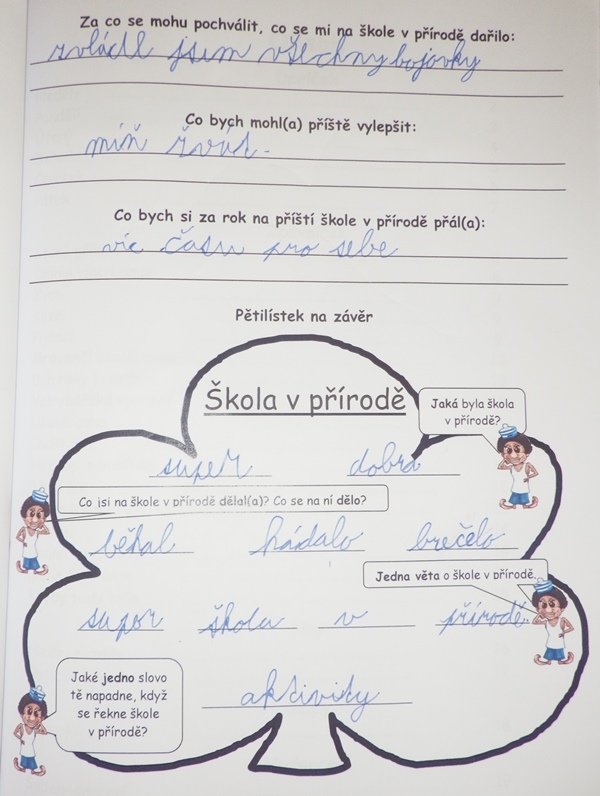 Za co se mohu pochválit, co se mi na škole v přírodě dařilo:
zvládl jsem všechny bojovky
Co bych mohl(a) příště vylepšit:
míň žvád.
Co bych si za rok na příští škole v přírodě přál(a):
víc času pro sebe
Pětilístek na závěr
Škola v přírodě
Jaká byla škola
v přírodě?
super dobrá
Co jsi na škole v přírodě dělal(a)? Co se na ní dělo?
běhal hádalo brečelo
Jedna věta o škole v přírodě.
supor škola v přírodě.
Jaké jedno slovo
tě napadne, když
se řekne škole
v přírodě?
aktivity